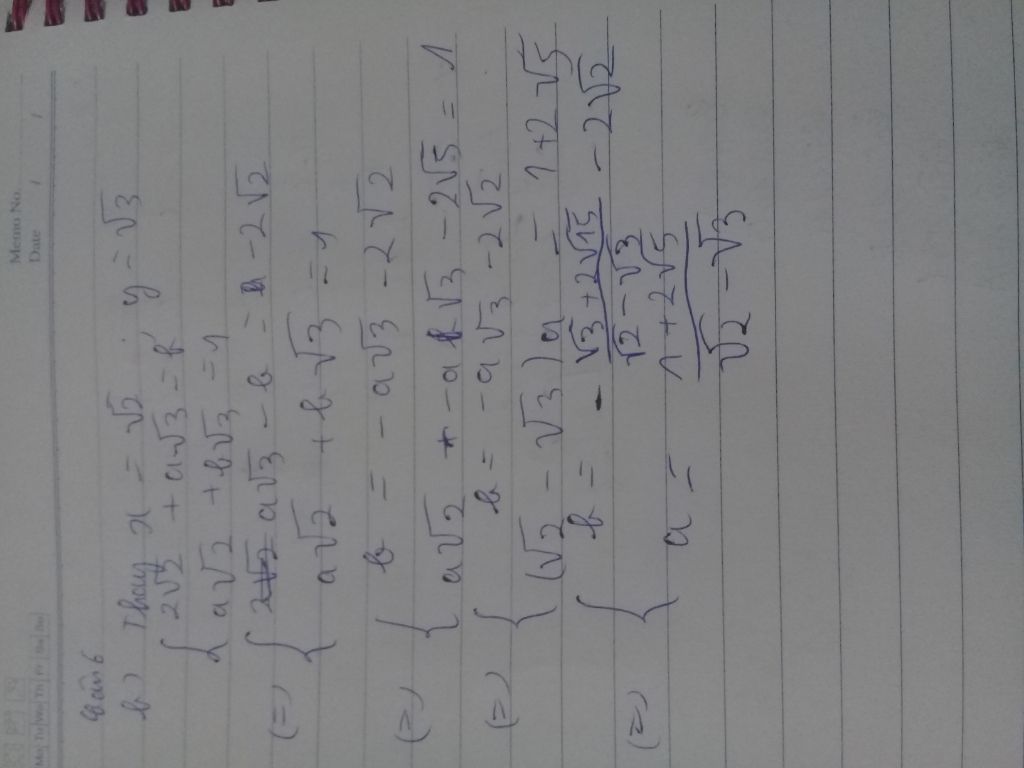 Memo No.
Date / /
Bài 6
b) Thay x = √2 ; y = √3
{ 2√2 + a√3 = b
a√2 + b√3 = 1
(=) { a√3 - b = -2√2
a√2 + b√3 = 1
(=) { b = -a√3 - 2√2
a√2 - a√3 - 2√5 = 1
(=) { b = -a√3 - 2√2
(√2 - √3)a = 1 + 2√5
(=) { b = - (√3 + 2√15)/(√2 - √3) - 2√2
a = (1 + 2√5)/(√2 - √3)